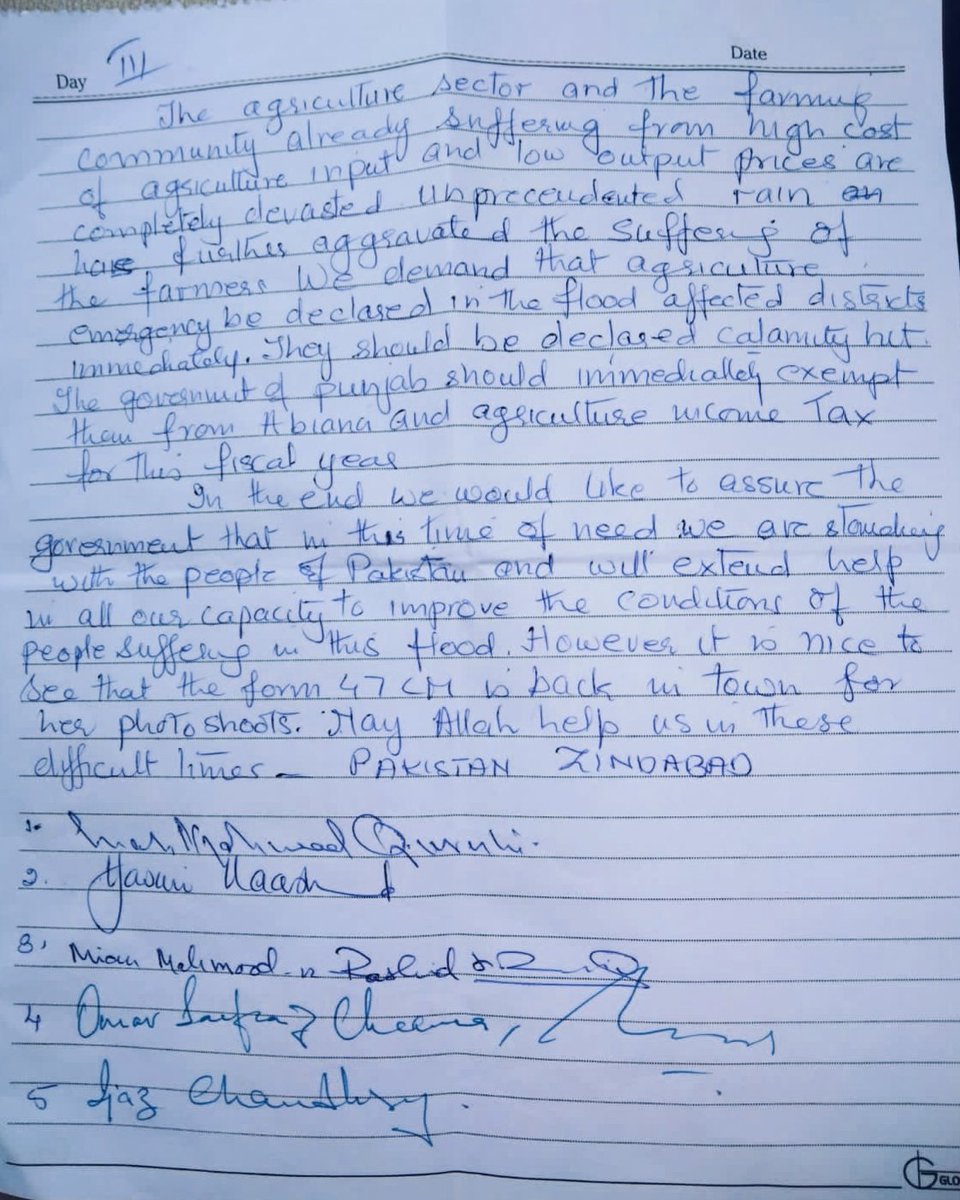 Day III Date
The agriculture sector and the farming
community already suffering from high cost
of agriculture input and low output prices are
completely devasted unprecendented rain
have further aggravated the suffering of
the farmers We demand that agriculture
emergency be declared in the flood affected districts
immediately. They should be declared calamity hit.
The government of punjab should immediately exempt
them from Abiana and agriculture income Tax
for this fiscal year
In the end we would like to assure the
government that in this time of need we are standing
with the people of Pakistan and will extend help
in all our capacity to improve the conditions of the
people suffering in this flood. However it is nice to
see that the form 47 CM is back in town for
her photo shoots. May Allah help us in these
difficult times – PAKISTAN ZINDABAD
1. Mahmood Qureshi.
2. Yasmin Rashid
3, Mian Mehmood ur Rashid
4 Omar Sarfraz Cheema,
5 Ijaz Chaudhry.
GLO